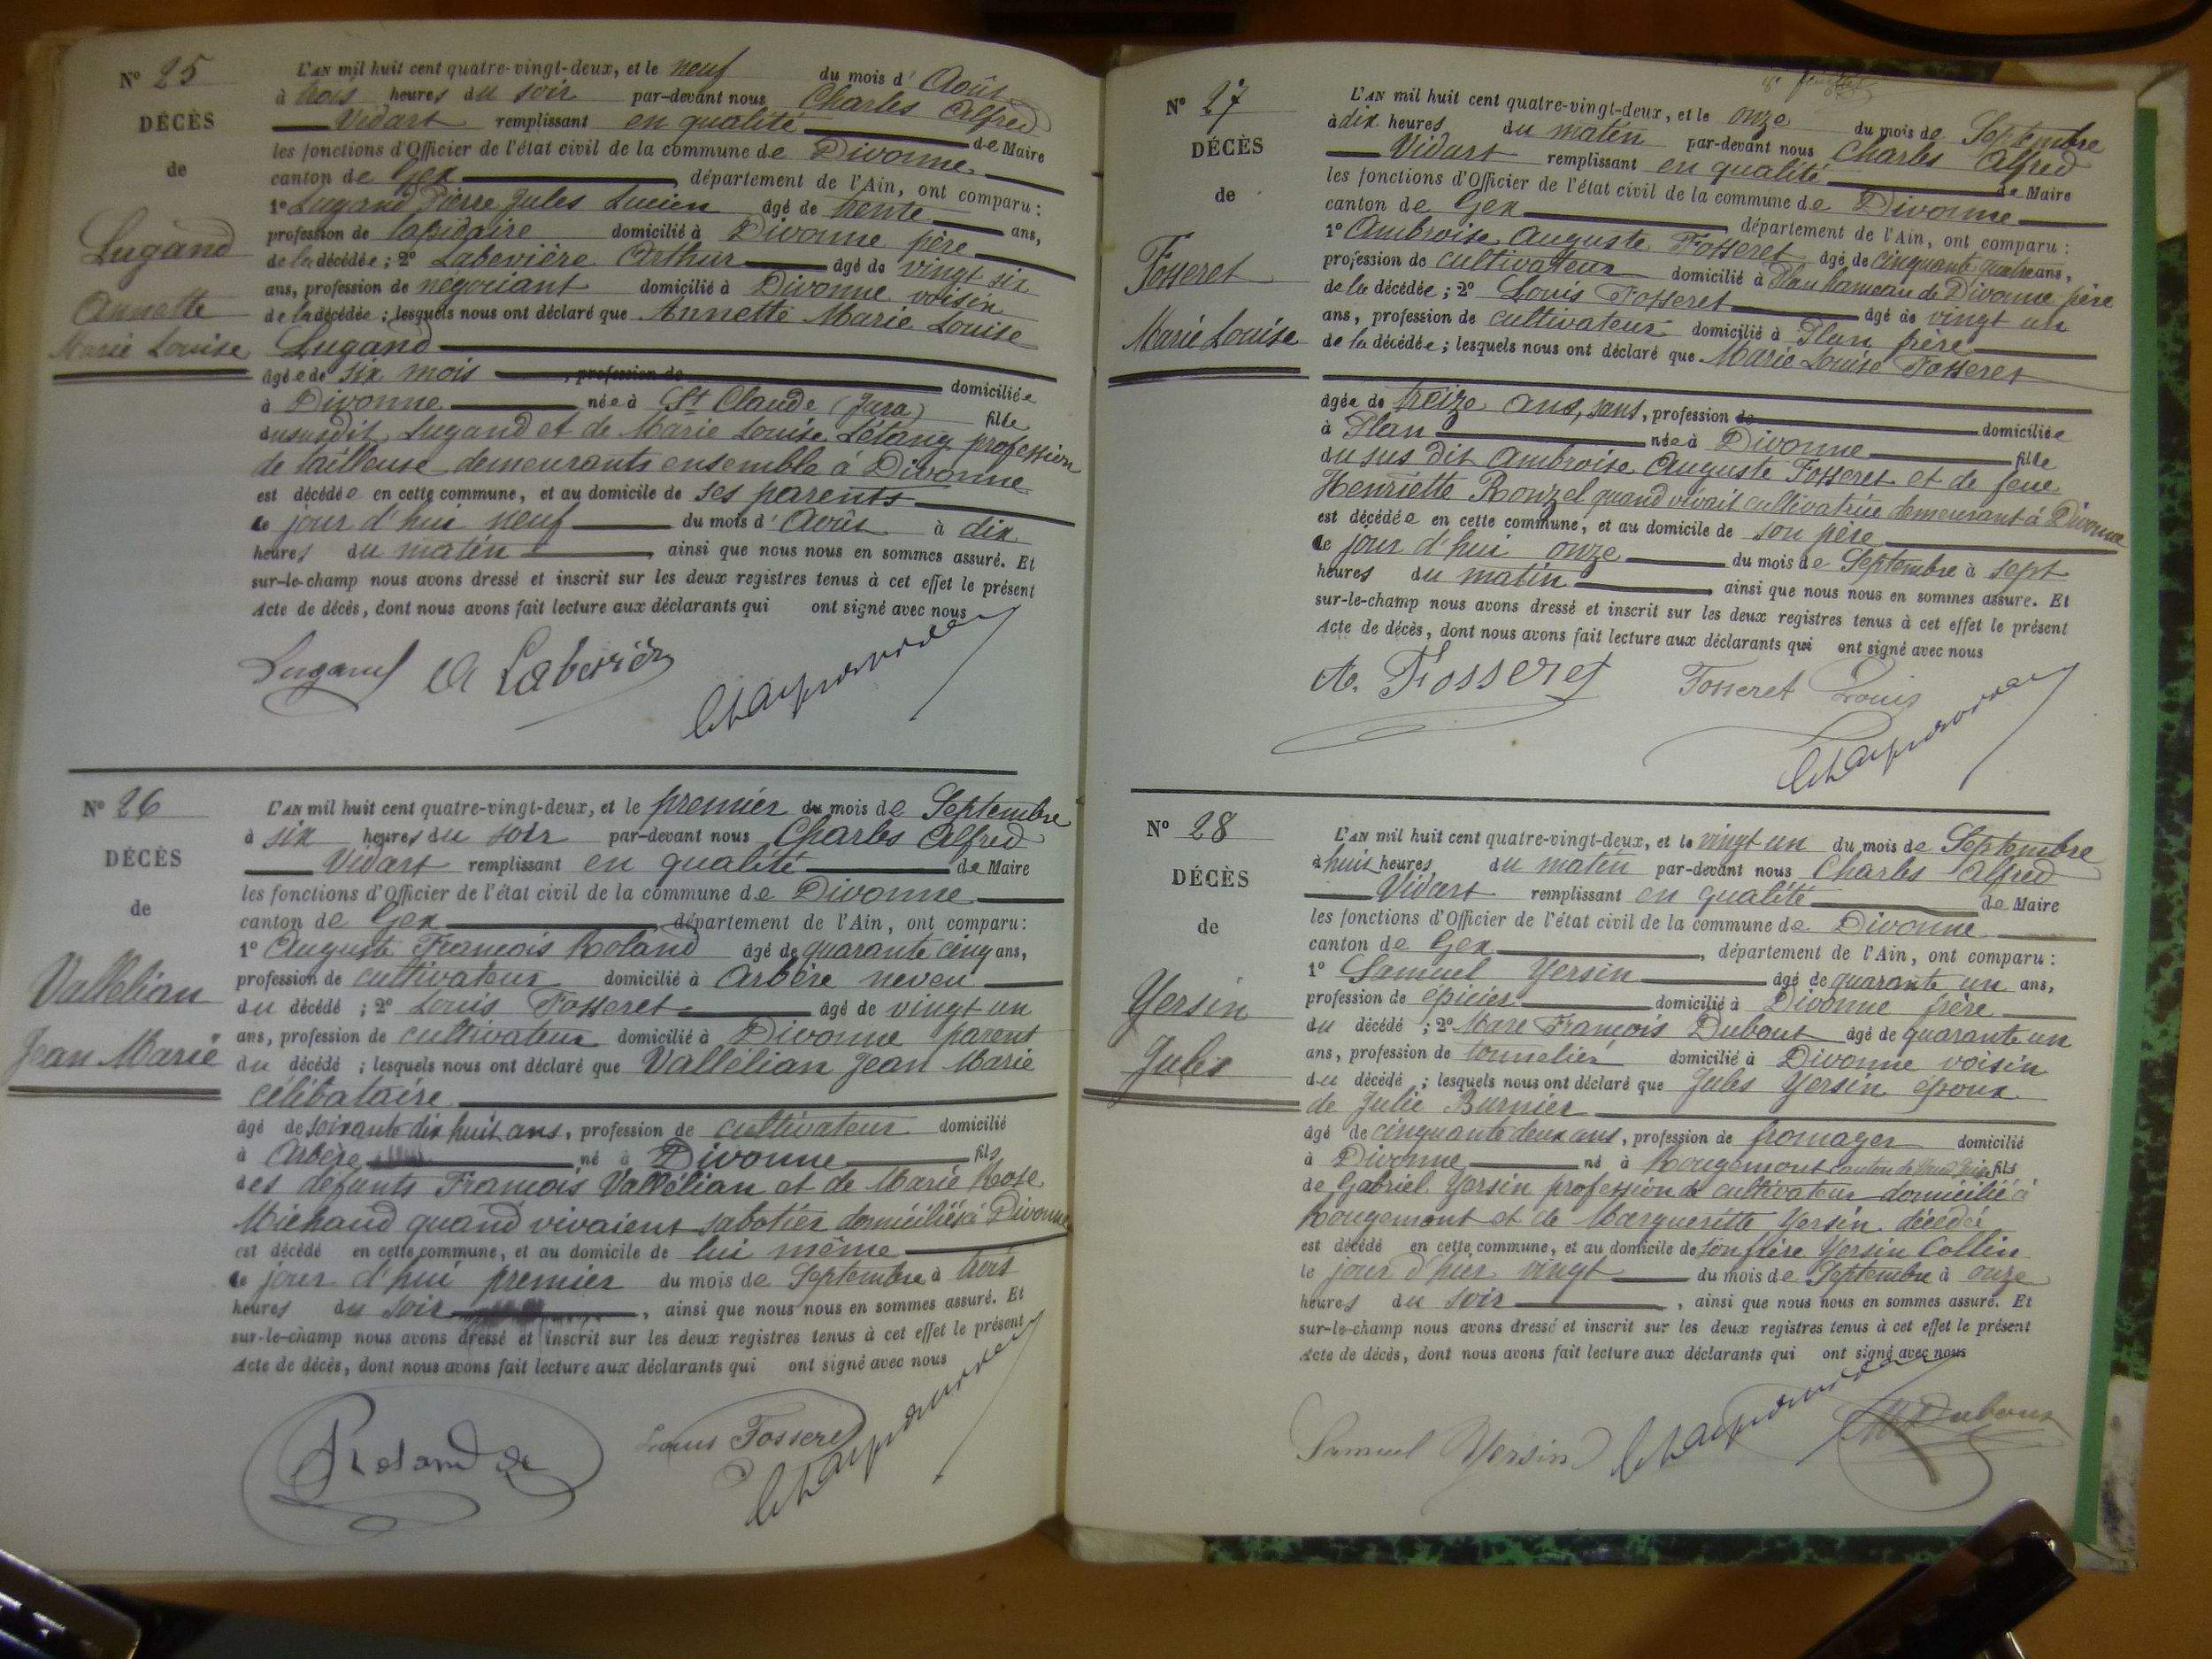 N° 25
DÉCÈS
de
Lugand
Annette
Marie Louise
L'AN mil huit cent quatre-vingt-deux, et le neuf du mois d'Août
à trois heures du soir par-devant nous Charles Alfred
Vidart remplissant en qualité de Maire
les fonctions d'Officier de l'état civil de la commune de Divonne
canton de Gex, département de l'Ain, ont comparu :
1° Lugand Pierre Jules Lucien âgé de trente ans,
profession de lapidaire domicilié à Divonne père
de la décédée ; 2° Labevière Arthur âgé de vingt six
ans, profession de négociant domicilié à Divonne voisin
de la décédée ; lesquels nous ont déclaré que Annette Marie Louise
Lugand
âgée de six mois, profession de domiciliée
à Divonne née à St Claude (Jura) fille
du susdit Lugand et de Marie Louise Létang profession
de tailleuse demeurants ensemble à Divonne
est décédée en cette commune, et au domicile de ses parents
le jour d'hui neuf du mois d'Août à dix
heures du matin, ainsi que nous nous en sommes assuré. Et
sur-le-champ nous avons dressé et inscrit sur les deux registres tenus à cet effet le présent
Acte de décès, dont nous avons fait lecture aux déclarants qui ont signé avec nous
Lugand A Labevière
N° 26
DÉCÈS
de
Vallélian
Jean Marie
L'AN mil huit cent quatre-vingt-deux, et le premier du mois de Septembre
à six heures du soir par-devant nous Charles Alfred
Vidart remplissant en qualité de Maire
les fonctions d'Officier de l'état civil de la commune de Divonne
canton de Gex, département de l'Ain, ont comparu :
1° Auguste François Roland âgé de quarante cinq ans,
profession de cultivateur domicilié à Arbère neveu
du décédé ; 2° Louis Fosseret âgé de vingt un
ans, profession de cultivateur domicilié à Divonne parent
du décédé ; lesquels nous ont déclaré que Vallélian Jean Marie
célibataire
âgé de soixante dix huit ans, profession de cultivateur domicilié
à Arbère né à Divonne fils
des défunts François Vallélian et de Marie Rose
Michaud quand vivaient sabotier domiciliés à Divonne
est décédé en cette commune, et au domicile de lui même
le jour d'hui premier du mois de Septembre à trois
heures du soir, ainsi que nous nous en sommes assuré. Et
sur-le-champ nous avons dressé et inscrit sur les deux registres tenus à cet effet le présent
Acte de décès, dont nous avons fait lecture aux déclarants qui ont signé avec nous
Roland Louis Fosseret
N° 27
DÉCÈS
de
Fosseret
Marie Louise
L'AN mil huit cent quatre-vingt-deux, et le onze du mois de Septembre
à dix heures du matin par-devant nous Charles Alfred
Vidart remplissant en qualité de Maire
les fonctions d'Officier de l'état civil de la commune de Divonne
canton de Gex, département de l'Ain, ont comparu :
1° Ambroise Auguste Fosseret âgé de cinquante quatre ans,
profession de cultivateur domicilié à Plan hameau de Divonne père
de la décédée ; 2° Louis Fosseret âgé de vingt un
ans, profession de cultivateur domicilié à Plan frère
de la décédée ; lesquels nous ont déclaré que Marie Louise Fosseret
âgée de treize ans, sans, profession de domiciliée
à Plan née à Divonne fille
du sus dit Ambroise Auguste Fosseret et de feue
Henriette Ronzel quand vivait cultivatrice demeurant à Divonne
est décédée en cette commune, et au domicile de son père
le jour d'hui onze du mois de Septembre à sept
heures du matin ainsi que nous nous en sommes assuré. Et
sur-le-champ nous avons dressé et inscrit sur les deux registres tenus à cet effet le présent
Acte de décès, dont nous avons fait lecture aux déclarants qui ont signé avec nous
A. Fosseret Fosseret Louis
N° 28
DÉCÈS
de
Yersin
Jules
L'AN mil huit cent quatre-vingt-deux, et le vingt un du mois de Septembre
à huit heures du matin par-devant nous Charles Alfred
Vidart remplissant en qualité de Maire
les fonctions d'Officier de l'état civil de la commune de Divonne
canton de Gex, département de l'Ain, ont comparu :
1° Samuel Yersin âgé de quarante un ans,
profession de épicier domicilié à Divonne frère
du décédé ; 2° Marc François Dubout âgé de quarante un
ans, profession de tonnelier domicilié à Divonne voisin
du décédé ; lesquels nous ont déclaré que Jules Yersin époux
de Julie Burnier
âgé de cinquante deux ans, profession de fromager domicilié
à Divonne né à Rougemont canton de Vaud fils
de Gabriel Yersin profession de cultivateur domicilié à
Rougemont et de Margueritte Yersin décédée
est décédé en cette commune, et au domicile de son frère Yersin Collin
le jour d'hier vingt du mois de Septembre à onze
heures du soir, ainsi que nous nous en sommes assuré. Et
sur-le-champ nous avons dressé et inscrit sur les deux registres tenus à cet effet le présent
Acte de décès, dont nous avons fait lecture aux déclarants qui ont signé avec nous
Samuel Yersin M Dubout